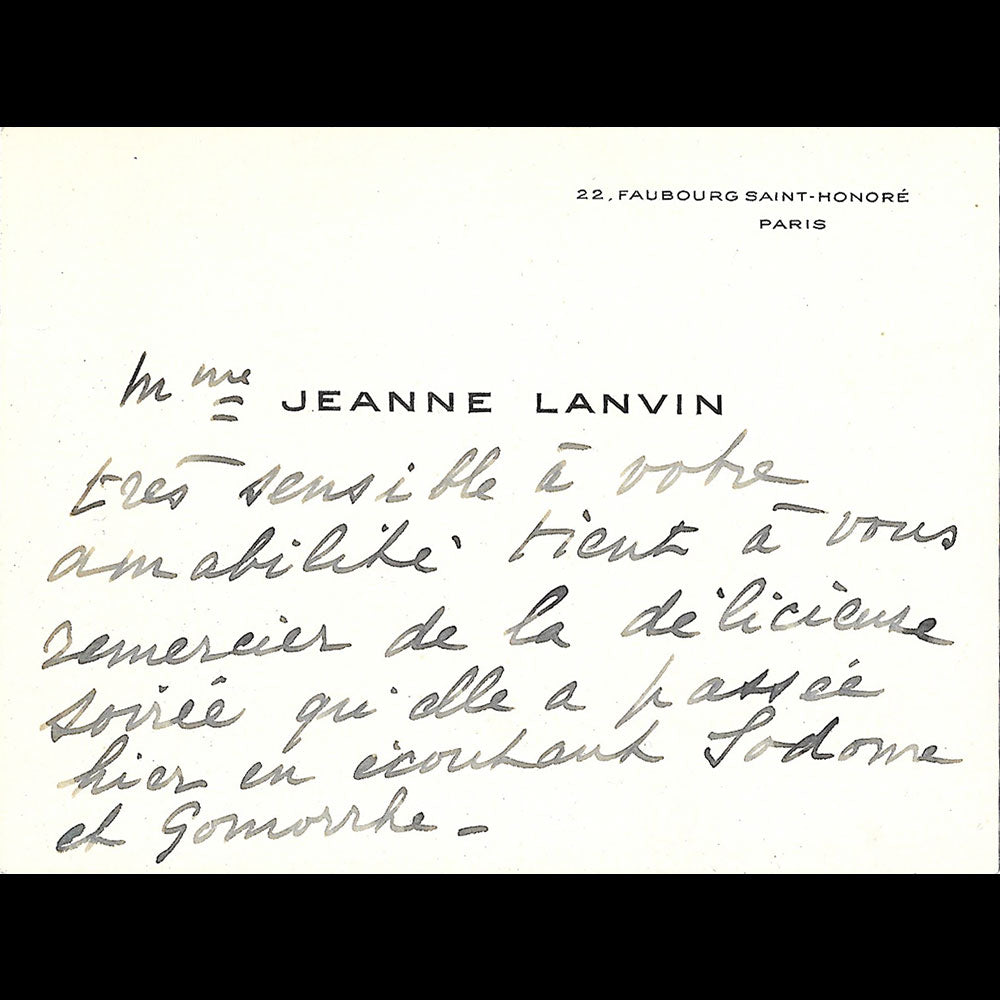 22, FAUBOURG SAINT-HONORÉ
PARIS
Mme JEANNE LANVIN
très sensible à votre
amabilité tient à vous
remercier de la délicieuse
soirée qu'elle a passée
hier en écoutant Sodome
et Gomorrhe -